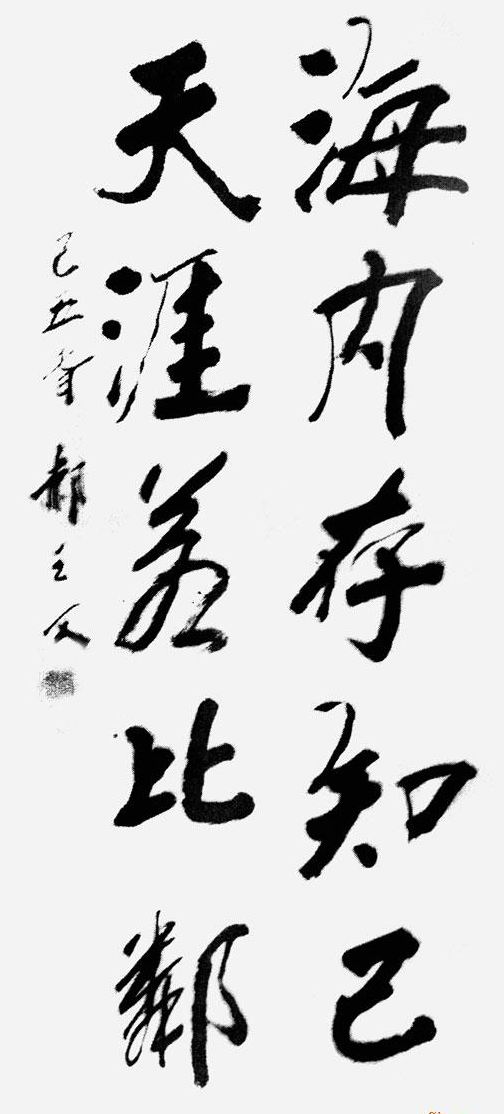 海内存知己
天涯若比邻
己丑春 郝